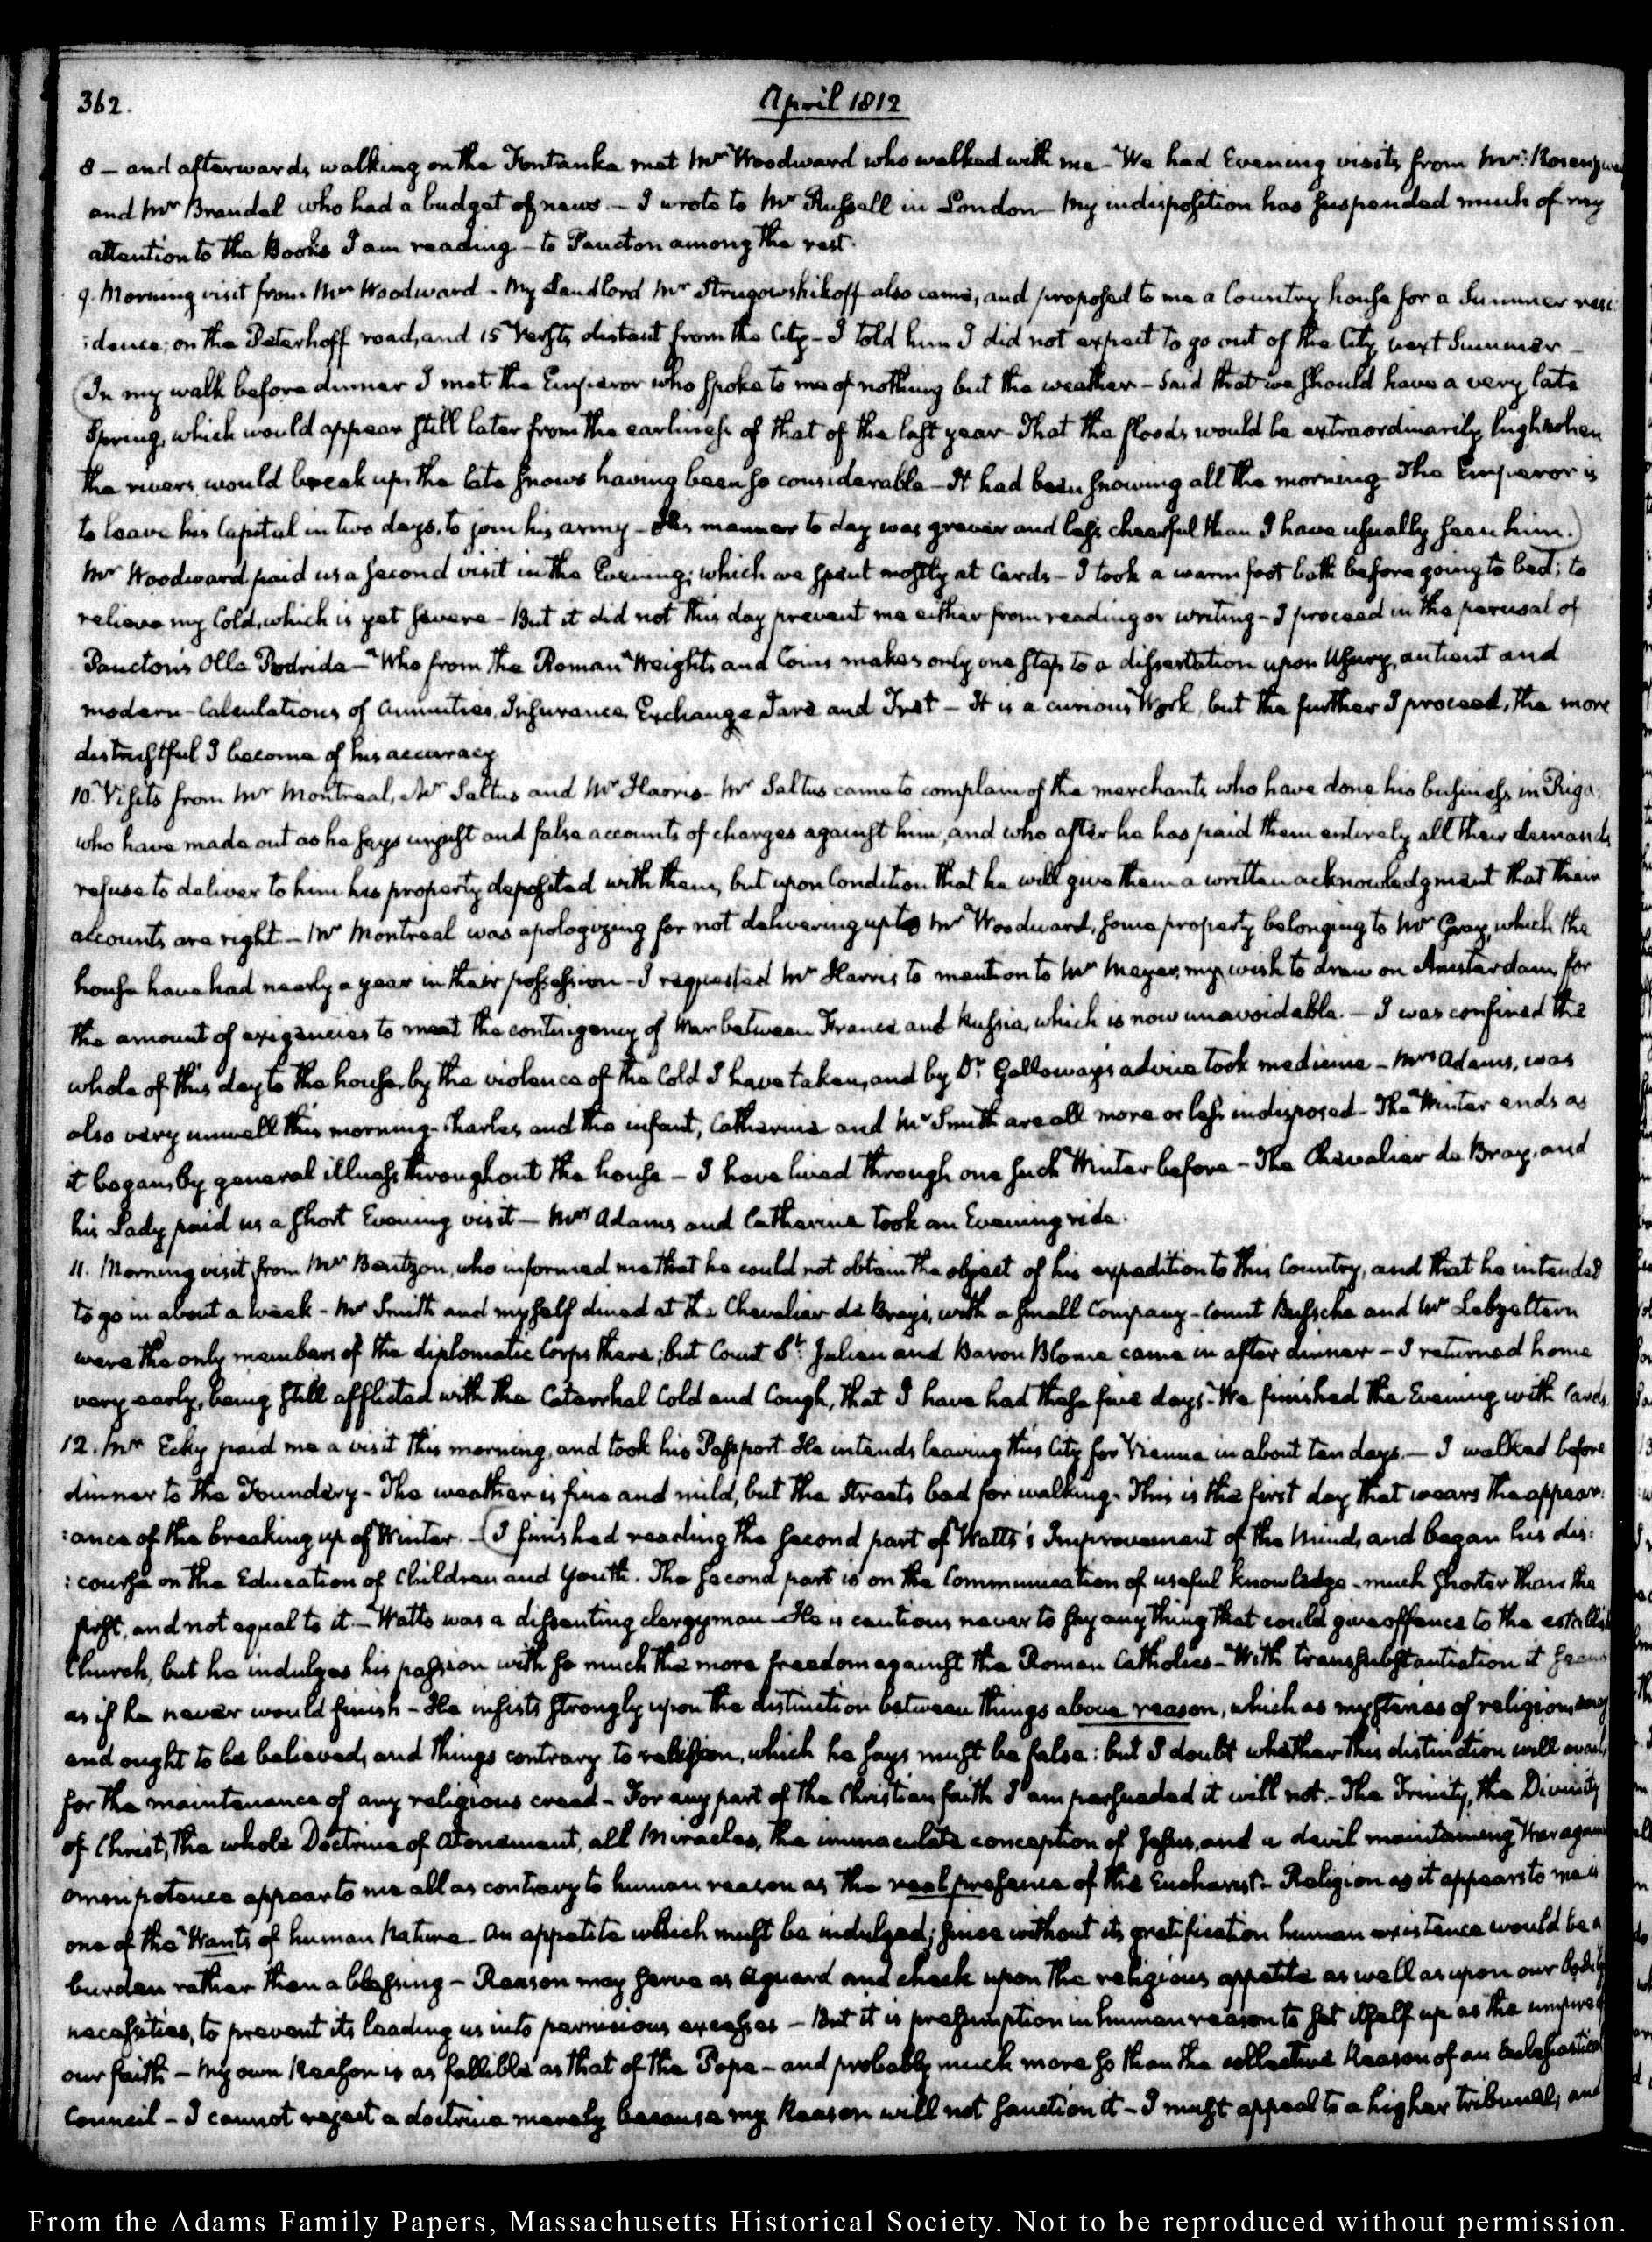 362.
April 1812
8 – and afterwards walking on the Fontanka met Mr Woodward who walked with me – We had Evening visits from Mr:
and Mr Brandel who had a budget of news. – I wrote to Mr Russell in London – My indisposition has suspended much of my
attention to the Books I am reading – to Paucton among the rest.
9. Morning visit from Mr Woodward – My Landlord Mr Strugowshikoff also came, and proposed to me a Country house for a Summer resi:
:dence; on the Peterhoff road, and 15 Versts distant from the City – I told him I did not expect to go out of the City next Summer –
(In my walk before dinner I met the Emperor who spoke to me of nothing but the weather – Said that we should have a very late
Spring, which would appear still later from the earliness of that of the last year – That the floods would be extraordinarily high when
the rivers would break up, the late snows having been so considerable – It had been snowing all the morning – The Emperor is
to leave his Capital in two days, to join his army – His manner to day was graver and less cheerful than I have usually seen him.)
Mr Woodward paid us a second visit in the Evening; which we spent mostly at Cards – I took a warm foot bath before going to bed; to
relieve my Cold, which is yet severe – But it did not this day prevent me either from reading or writing – I proceed in the perusal of
Paucton's Olla Podrida – Who from the Roman Weights and Coins makes only one step to a dissertation upon Usury, antient and
modern – Calculations of Annuities, Insurance, Exchange Tare and Tret – It is a curious Work, but the further I proceed, the more
distrustful I become of his accuracy
10. Visits from Mr Montreal, Mr Saltus and Mr Harris – Mr Saltus came to complain of the merchants who have done his business in Riga;
who have made out as he says unjust and false accounts of charges against him, and who after he has paid them entirely all their demands
refuse to deliver to him his property deposited with them, but upon Condition that he will give them a written acknowledgment that their
accounts are right – Mr Montreal was apologizing for not delivering up to Mr Woodward, some property belonging to Mr Gray, which the
house have had nearly a year in their possession – I requested Mr Harris to mention to Mr Meyer, my wish to draw on Amsterdam for
the amount of exigencies to meet the contingency of War between France and Russia, which is now unavoidable. – I was confined the
whole of this day to the house, by the violence of the Cold I have taken, and by Dr. Galloway's advice took medicine – Mrs Adams, was
also very unwell this morning – Charles and the infant, Catherine and Mr Smith are all more or less indisposed – The Winter ends as
it began, by general illness throughout the house – I have lived through one such Winter before – The Chevalier de Bray, and
his Lady paid us a short Evening visit – Mrs Adams and Catherine took an Evening ride.
11. Morning visit from Mr Bentzon, who informed me that he could not obtain the object of his expedition to this Country, and that he intended
to go in about a week – Mr Smith and myself dined at the Chevalier de Bray's, with a small Company – Count Bussche and Mr Lebzeltern
were the only members of the diplomatic Corps there; but Count St. Julien and Baron Blome came in after dinner – I returned home
very early, being still afflicted with the Catarrhal Cold and Cough, that I have had these five days – We finished the Evening with Cards.
12. Mr Ecky paid me a visit this morning, and took his Passport. He intends leaving this City for Vienna in about ten days. – I walked before
dinner to the Foundery – The weather is fine and mild, but the Streets bad for walking – This is the first day that wears the appear:
:ance of the breaking up of Winter. – (I finished reading the second part of Watts's Improvement of the Mind, and began his dis:
:course on the Education of Children and Youth. The second part is on the Communication of useful knowledge – much shorter than the
first, and not equal to it – Watts was a dissenting clergyman – He is cautious never to say any thing that could give offence to the establish
Church, but he indulges his passion with so much the more freedom against the Roman Catholics – With transubstantiation it seems
as if he never would finish – He insists strongly upon the distinction between things above reason, which as mysteries of religion, may
and ought to be believed, and things contrary to religion, which he says must be false: but I doubt whether this distinction will avail
for the maintenance of any religious creed – For any part of the Christian faith I am persuaded it will not. – The Trinity, the Divinity
of Christ, the whole Doctrine of Atonement, all Miracles, the immaculate conception of Jesus, and a devil maintaining War against
omnipotence appear to me all as contrary to human reason as the real presence of the Eucharist – Religion as it appears to me is
one of the Wants of human Nature – An appetite which must be indulged; since without its gratification human existence would be a
burden rather than a blessing – Reason may serve as a guard and check upon the religious appetite as well as upon our bodily
necessities, to prevent its leading us into pernicious excesses – But it is presumption in human reason to set itself up as the umpire of
our faith – My own Reason is as fallible as that of the Pope – and probably much more so than the collective Reason of an Ecclesiastical
Council – I cannot reject a doctrine merely because my Reason will not sanction it – I must appeal to a higher tribunal, and
From the Adams Family Papers, Massachusetts Historical Society. Not to be reproduced without permission.